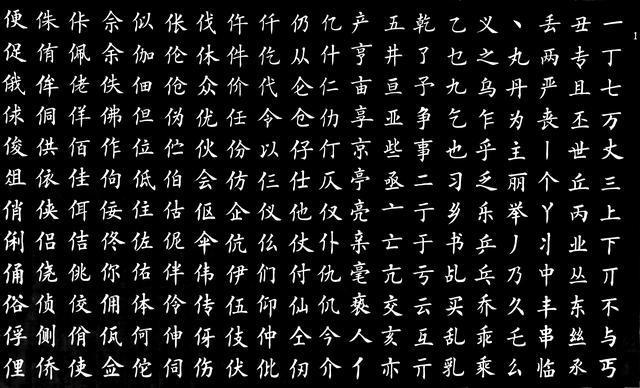 一丁七万丈三上下丌不与丐
丑专且丕世丘丙业丛东丝丞
丢两严丧丨个丫丬中丰串临
丶丸丹为主丽举丿乃久乇么
义之乌乍乎乏乐乒乓乔乖乘
乙乜九乞也习乡书乩买乱乳
乾了予争事二亍于亏云互亓
五井亘亚些亟亠亡亢交亥亦
产亨亩享京亭亮亲亳亵人亻
亿什仁仂仃仄仅仆仇仉今介
仍从仑仓仔仕他仗付仙仝仞
仟仡代令以仨仪仫们仰仲仳
仵件价任份仿企伉伊伍伎伏
伐休众优伙会伛伞伟传伢伤
伥伦伧伪伫伯估伲伴伶伸伺
似伽佃但位低住佐佑体何佗
佘余佚佛作佝佞佟你佣佤佥
佧佩佬佯佰佳佴佶佻佼佾使
侏侑侔侗供依侠侣侥侦侧侨
便促俄俅俊俎俏俐俑俗俘俚
1